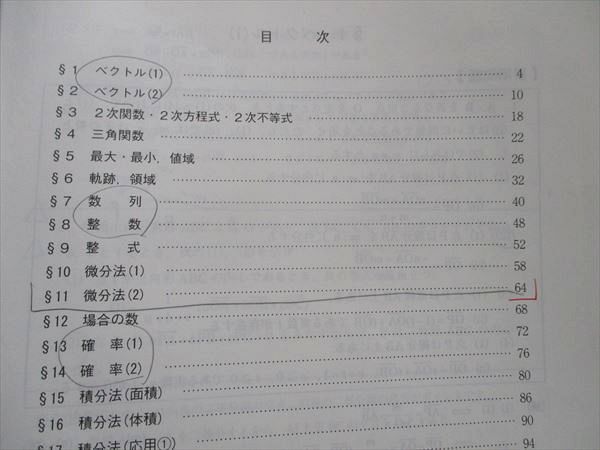 目 次
§1 ベクトル(1) 4
§2 ベクトル(2) 10
§3 2次関数・2次方程式・2次不等式 18
§4 三角関数 22
§5 最大・最小,値域 26
§6 軌跡,領域 32
§7 数 列 40
§8 整 数 48
§9 整 式 52
§10 微分法(1) 58
§11 微分法(2) 64
§12 場合の数 68
§13 確 率(1) 72
§14 確 率(2) 76
§15 積分法(面積) 80
§16 積分法(体積) 86
§17 積分法(応用①) 90
94